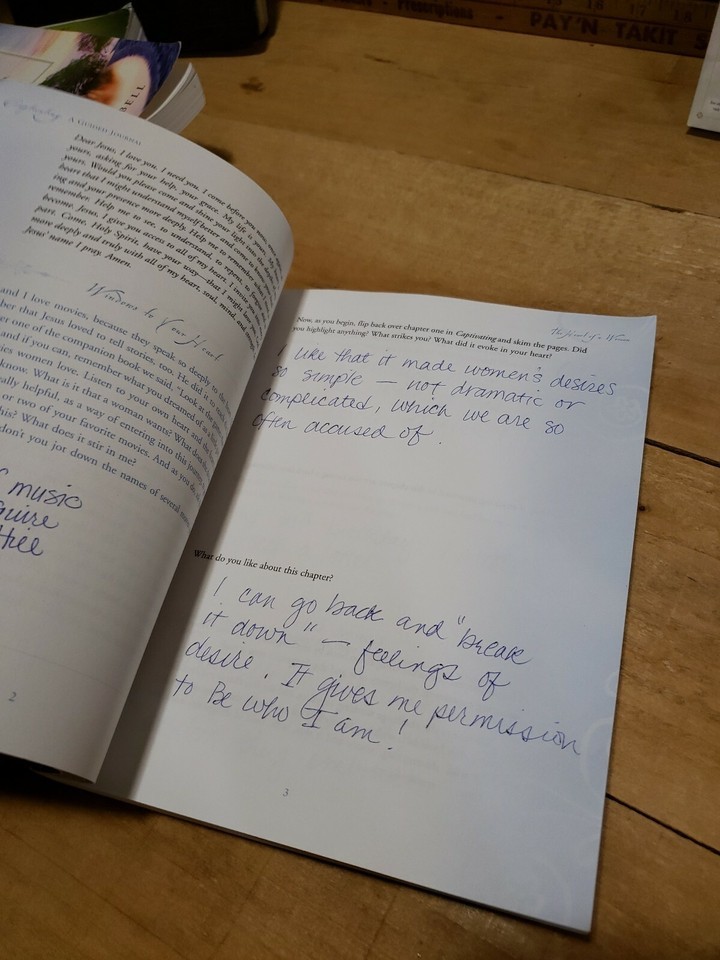 Prescriptions
15 16 17 18
PAY'N TAKIT S
BELL
Captivating A GUIDED JOURNAL
Dear Jesus, I love you. I need you. I come before you now
yours, asking for your help, your grace. My life is yours. My
yours. Would you please come and shine your light into the
heart that I might understand myself better and come to
ing and your presence more deeply. Help me to remember
remember. Help me to see, to understand, to repent, to forgive
become. Jesus, I give you access to all of my heart. I invite you
part. Come, Holy Spirit, have your way—that I might love
more deeply and truly with all of my heart, soul, mind, and
Jesus' name I pray. Amen.
Windows to Your Heart
and I love movies, because they speak so deeply to the
ber that Jesus loved to tell stories, too. He did it
er one of the companion book we said, "Look at the games
and if you can, remember what you dreamed of as a
ies women love. Listen to your own heart and the
know. What is it that a woman wants? What does
ally helpful, as a way of entering into this journey
or two of your favorite movies. And as you
his? What does it stir in me?
don't you jot down the names of several
music
guire
Hill
2
The Heart of a Woman
Now, as you begin, flip back over chapter one in Captivating and skim the pages. Did
you highlight anything? What strikes you? What did it evoke in your heart?
I like that it made women's desires
so simple — not dramatic or
complicated, which we are so
often accused of.
What do you like about this chapter?
I can go back and "break
it down" — feelings of
desire. It gives me permission
to Be who I am!
3